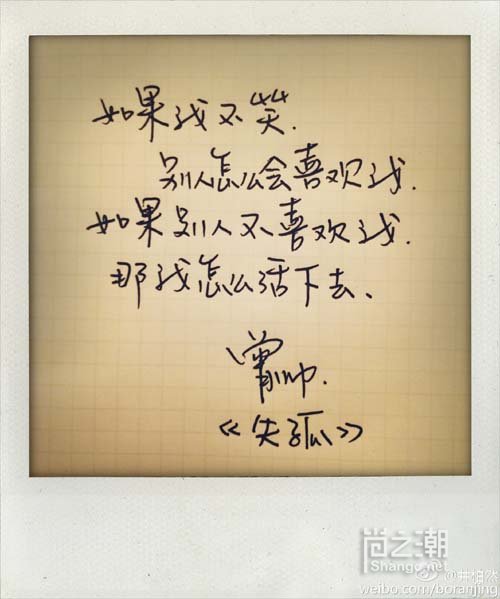 如果我不笑.
别人怎么会喜欢我.
如果别人不喜欢我.
那我怎么活下去、
曾帅.
《失孤》
尚之潮
Shango.net
@井柏然
weibo.com/boranjing